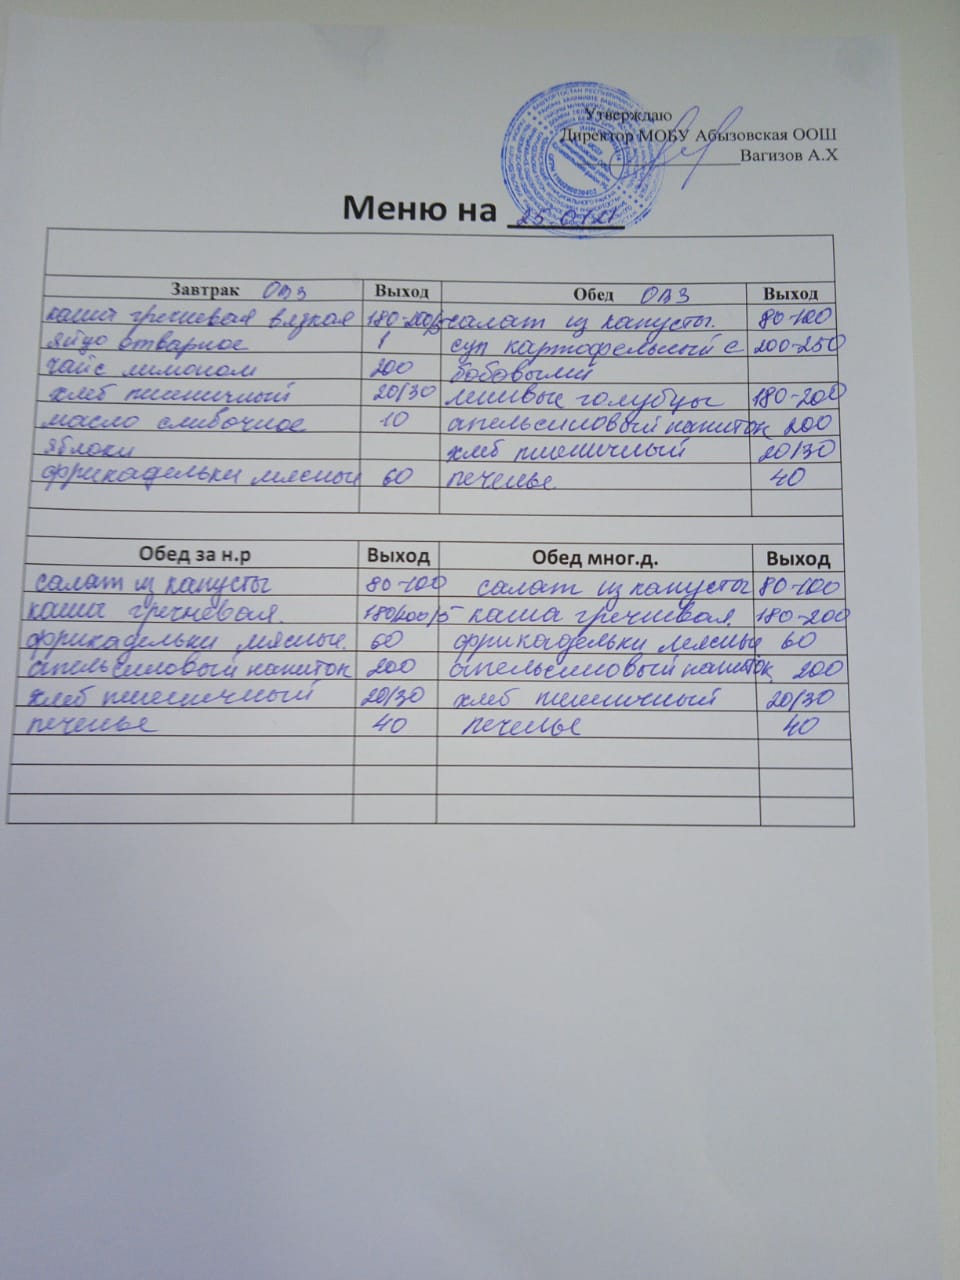 Утверждаю
Директор МОБУ Абызовская ООШ
Вагизов А.Х
Меню на
Завтрак ОВЗ Выход Обед ОВЗ Выход
каша гречневая вязкая 180-200/5 салат из капусты. 80-100
яйцо отварное 1 суп картофельный с 200-250
чай с лимоном 200 бобовыми
хлеб пшеничный 20/30 ленивые голубцы 180-200
масло сливочное 10 апельсиновый напиток 200
яблоки хлеб пшеничный 20/30
фрикадельки мясные 60 печенье 40
Обед за н.р Выход Обед мног.д. Выход
салат из капусты 80-100 салат из капусты 80-100
каша гречневая. 180/200/5 каша гречневая. 180-200
фрикадельки мясные. 60 фрикадельки мясные 60
апельсиновый напиток 200 апельсиновый напиток 200
хлеб пшеничный 20/30 хлеб пшеничный 20/30
печенье 40 печенье 40